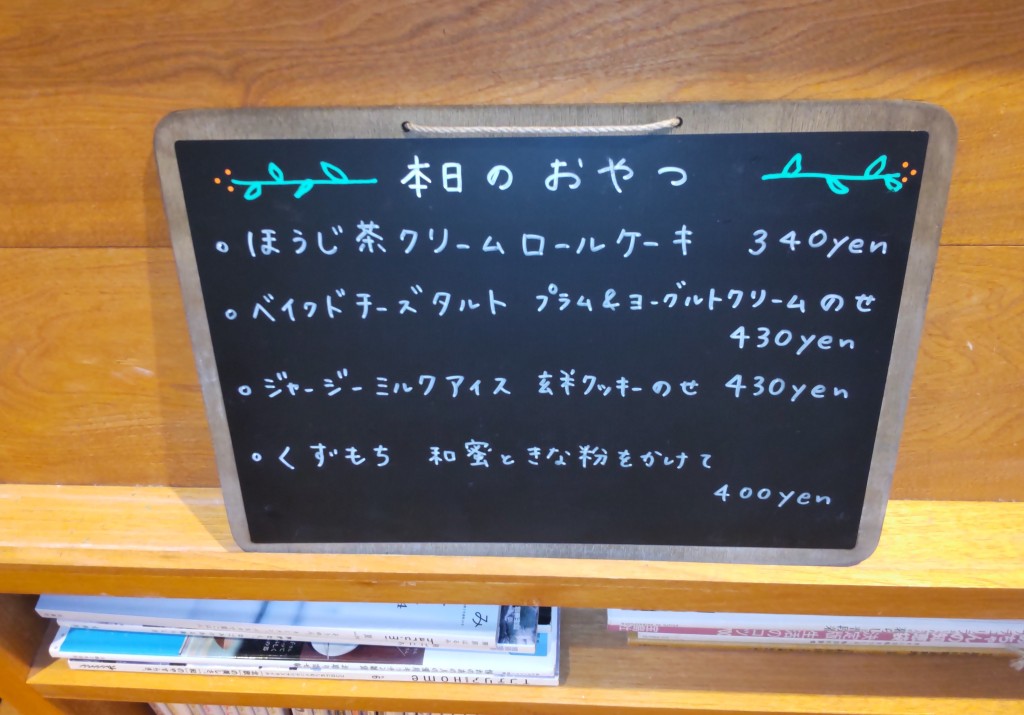 本日のおやつ
ほうじ茶クリームロールケーキ 340yen
ベイクドチーズタルト プラム&ヨーグルトクリームのせ
430yen
ジャージーミルクアイス 玄米クッキーのせ 430yen
くずもち 和蜜ときな粉をかけて
400yen
haru_mi